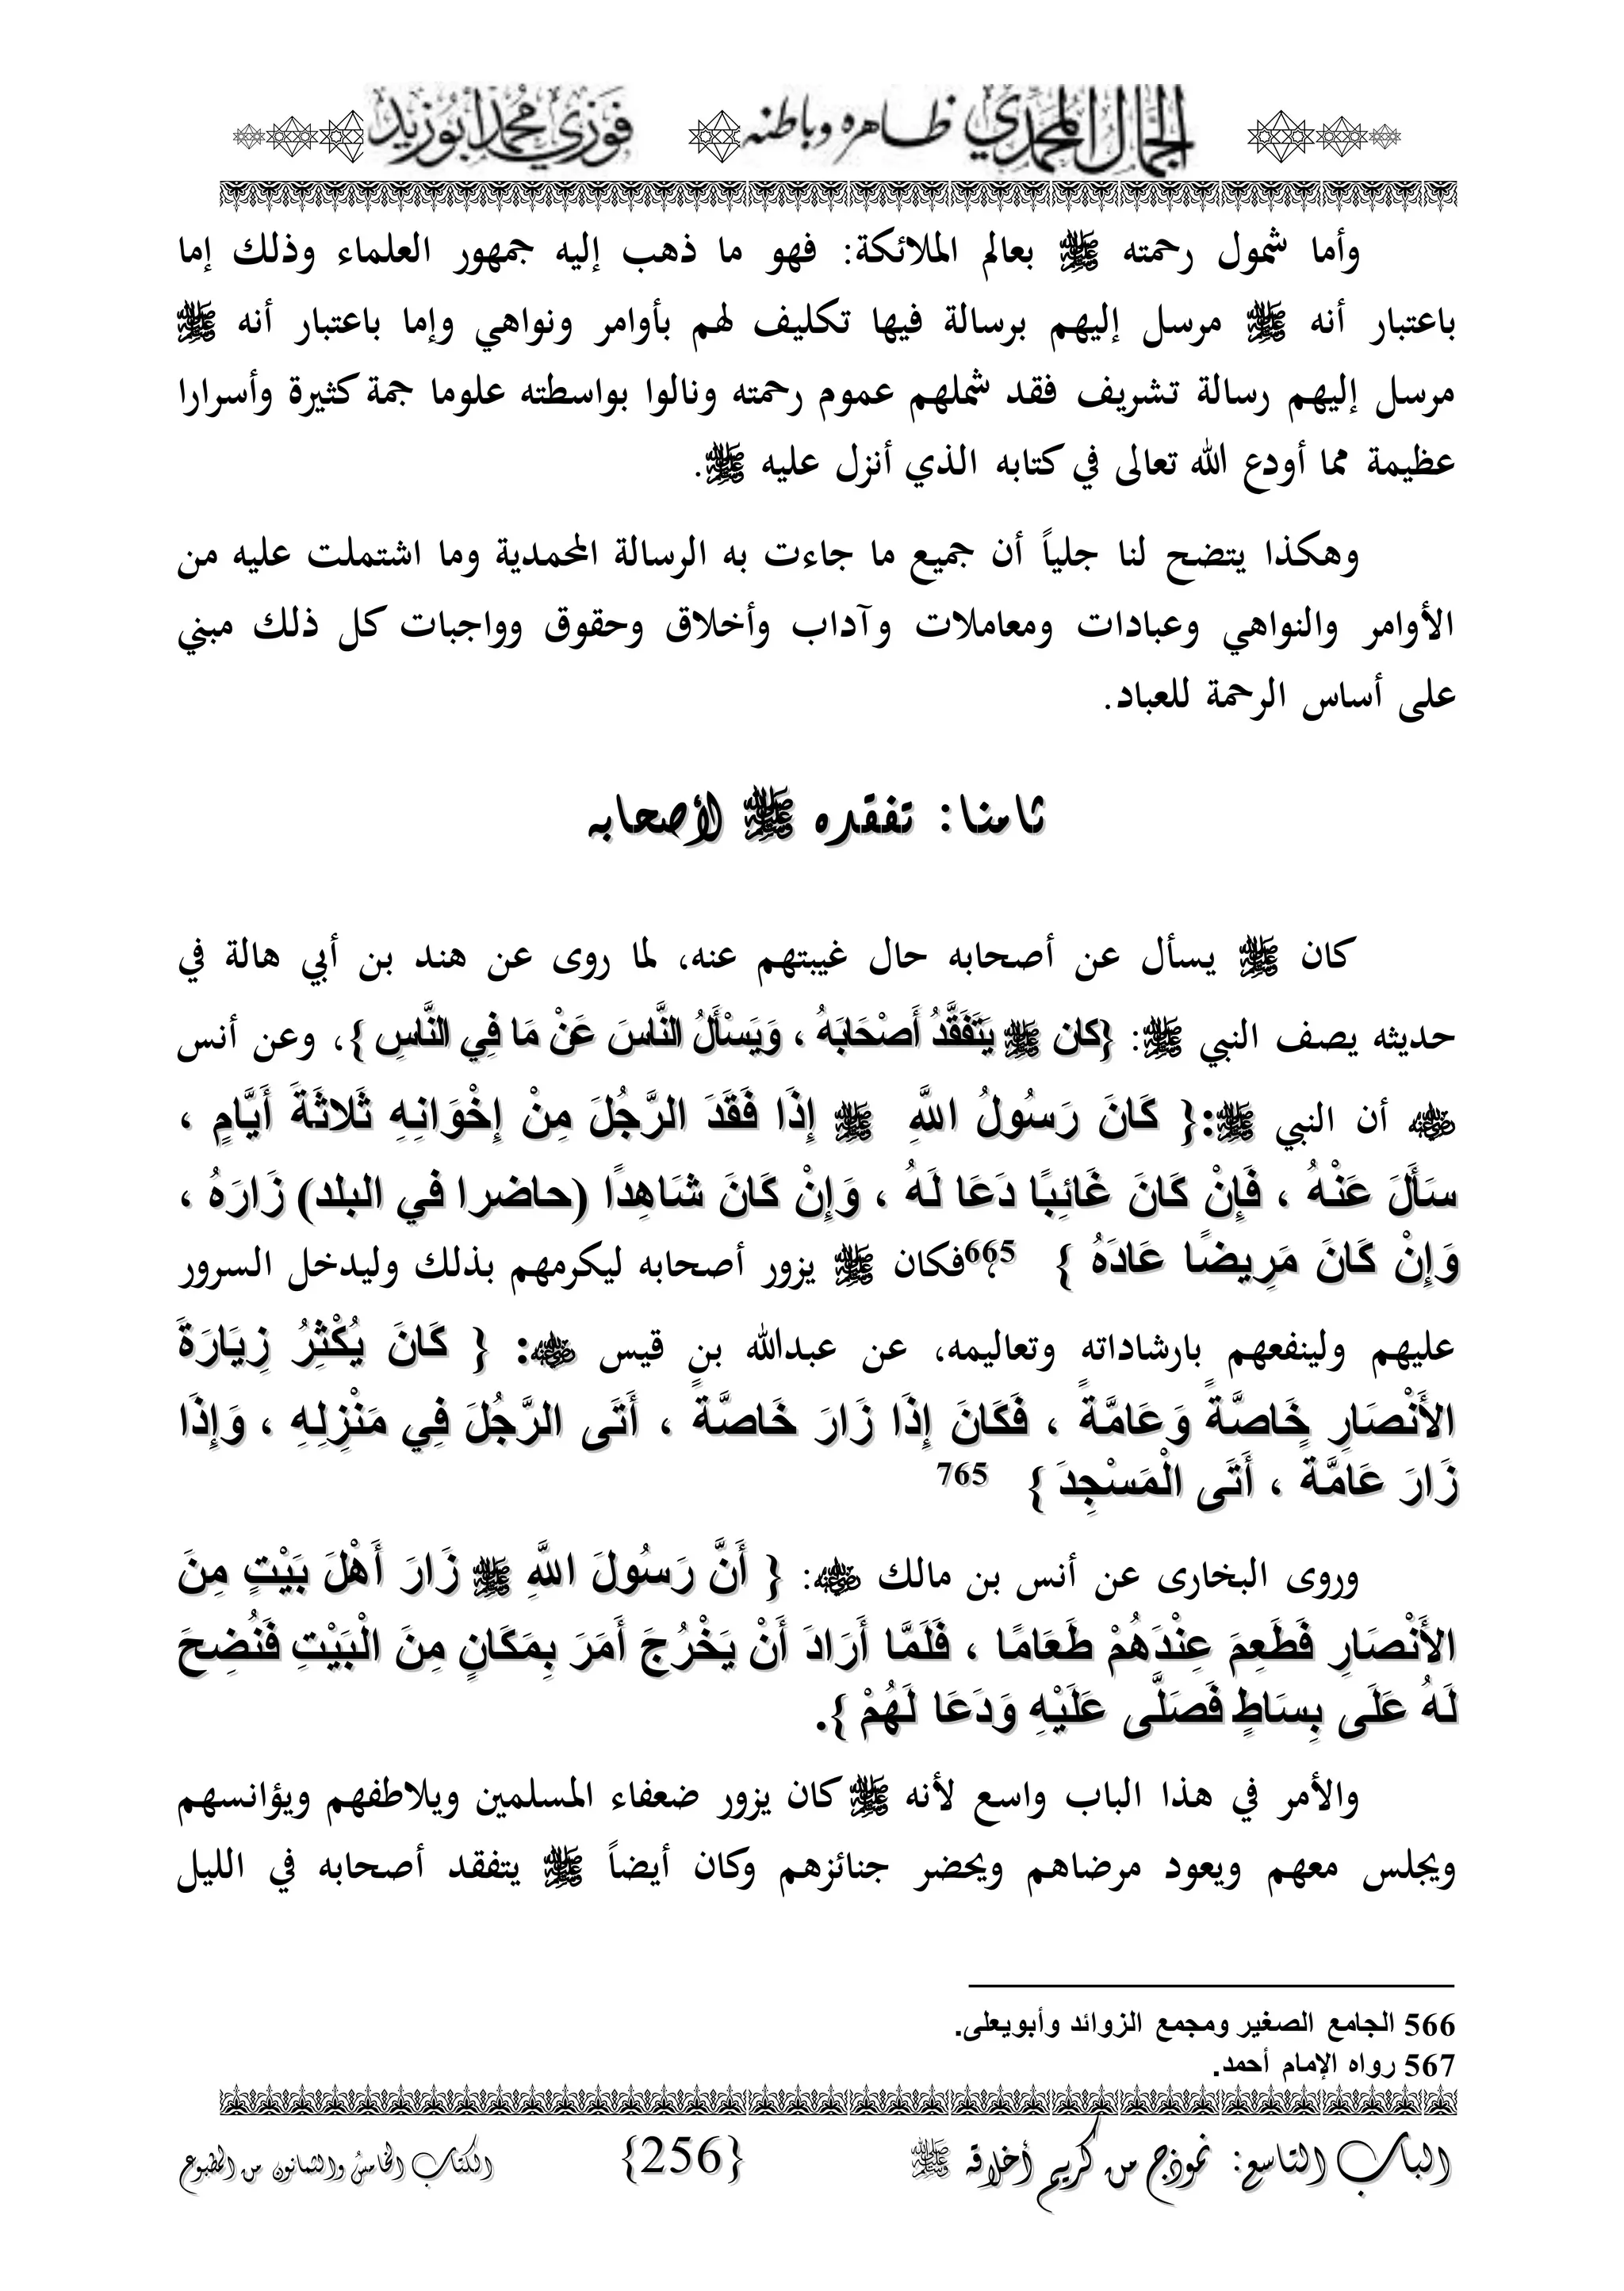 الجمال المحمدي ظاهره وباطنه فوزي محمد أبوزيد
وأما شمول رحمته ﷺ بعالم الملائكة: فهو ما ذهب إليه جمهور العلماء وذلك إما
باعتبار أنه ﷺ مرسل إليهم برسالة فيها تكليف لهم بأوامر ونواهي وإما باعتبار أنه ﷺ
مرسل إليهم رسالة تشريف فقد شملهم عموم رحمته ونالوا بواسطته علوما جمة كثيرة وأسرارا
عظيمة مما أودع الله تعالى في كتابه الذي أنزل عليه ﷺ.
وهكذا يتضح لنا جلياً أن جميع ما جاءت به الرسالة المحمدية وما اشتملت عليه من
الأوامر والنواهي وعبادات ومعاملات وآداب وأخلاق وحقوق وواجبات كل ذلك مبني
على أساس الرحمة للعباد.
ثامنا: تفقده ﷺ لأصحابه
كان ﷺ يسأل عن أصحابه حال غيبتهم عنه، لما روى عن هند بن أبي هالة في
حديثه يصف النبي ﷺ: {كان ﷺ يَتَفَقَّدُ أَصْحَابَهُ ، وَيَسْأَلُ النَّاسَ عَنْ مَا فِي النَّاسِ }، وعن أنس
﵁ أن النبي ﷺ:{ كَانَ رَسُولُ اللَّهِ ﷺ إِذَا فَقَدَ الرَّجُلَ مِنْ إِخْوَانِهِ ثَلاثَةَ أَيَّامٍ ،
سَأَلَ عَنْهُ ، فَإِنْ كَانَ غَائِبًا دَعَا لَهُ ، وَإِنْ كَانَ شَاهِدًا (حاضرا في البلد) زَارَهُ ،
وَإِنْ كَانَ مَرِيضًا عَادَهُ } 665؟فكان ﷺ يزور أصحابه ليكرمهم بذلك وليدخل السرور
عليهم ولينفعهم بارشاداته وتعاليمه، عن عبدالله بن قيس ﵁: { كَانَ يُكْثِرُ زِيَارَةَ
الأَنْصَارِ خَاصَّةً وَعَامَّةً ، فَكَانَ إِذَا زَارَ خَاصَّةً ، أَتَى الرَّجُلَ فِي مَنْزِلِهِ ، وَإِذَا
زَارَ عَامَّةً ، أَتَى الْمَسْجِدَ } 765
وروى البخارى عن أنس بن مالك ﵁: { أَنَّ رَسُولَ اللَّهِ ﷺ زَارَ أَهْلَ بَيْتٍ مِنَ
الأَنْصَارِ فَطَعِمَ عِنْدَهُمْ طَعَامًا ، فَلَمَّا أَرَادَ أَنْ يَخْرُجَ أَمَرَ بِمَكَانٍ مِنَ الْبَيْتِ فَنُضِحَ
لَهُ عَلَى بِسَاطٍ فَصَلَّى عَلَيْهِ وَدَعَا لَهُمْ }.
والأمر في هذا الباب واسع لأنه ﷺ كان يزور ضعفاء المسلمين ويلاطفهم ويؤانسهم
ويجلس معهم ويعود مرضاهم ويحضر جنائزهم وكان أيضاً ﷺ يتفقد أصحابه في الليل
566 الجامع الصغير ومجمع الزوائد وأبويعلى.
567 رواه الإمام أحمد.
الباب التاسع: نموذج من كريم أخلاقه ﷺ {256} الكتاب الخامس والثمانون من المطبوع